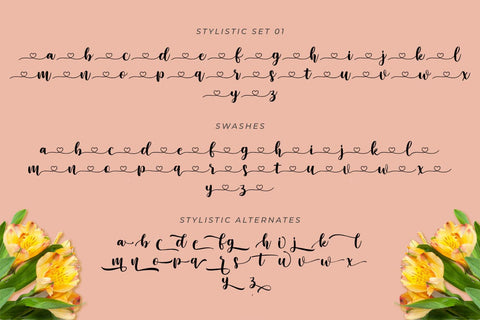 STYLISTIC SET 01
a b c d e f g h i j k l
m n o p q r s t u v w x
y z
SWASHES
a b c d e f g h i j k l
m n o p q r s t u v w x
y z
STYLISTIC ALTERNATES
a b c d e f g h i j k l
m n o p q r s t u v w x
y z